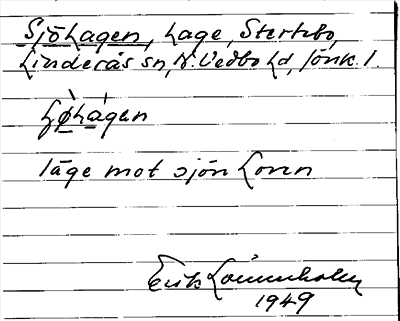 Sjöhagen, hage, Stertebo,
Linderås sn, N. Vedbo hd, Jönk. l.
ʃø̀há́gen
läge mot sjön Loren
Erik Lönnerholm
1949